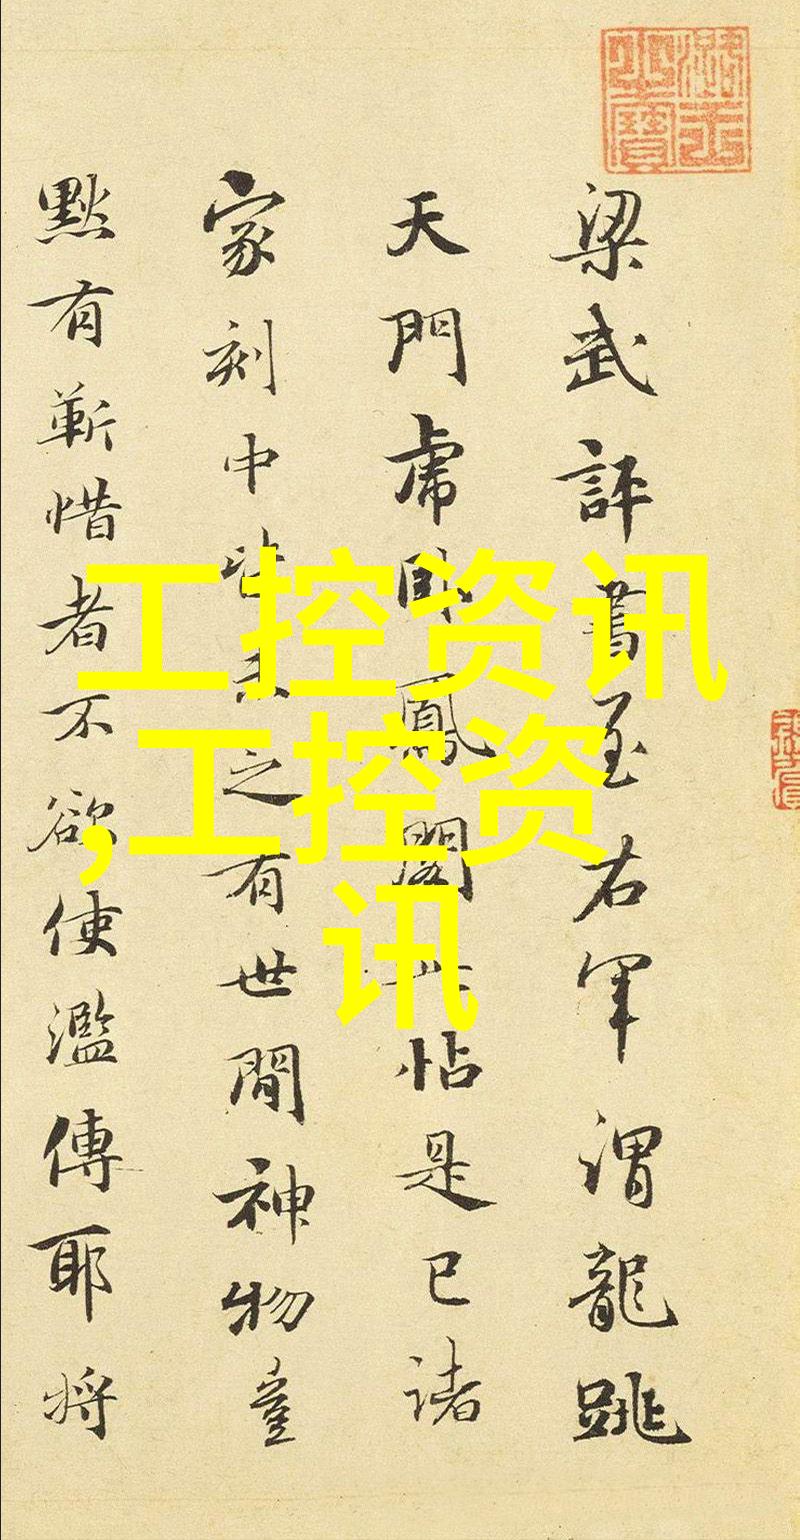 梁武評書至右軍謂龍跳
天門虎臥鳳閣此帖是已諸
家刻中皆未之有世間神物豈
黙有靳惜者不欲使濫傳耶将
工控资讯
,工控资
讯